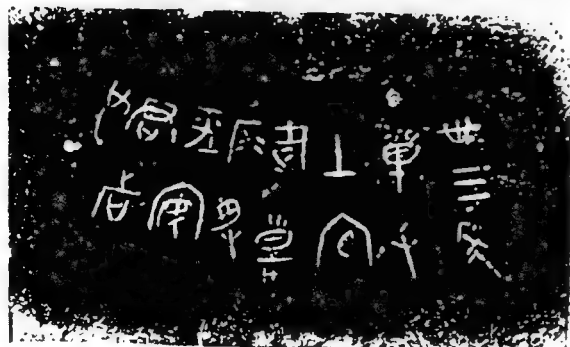 卅三年
單父
上官
冢子憙
所受
坪安
君者
也